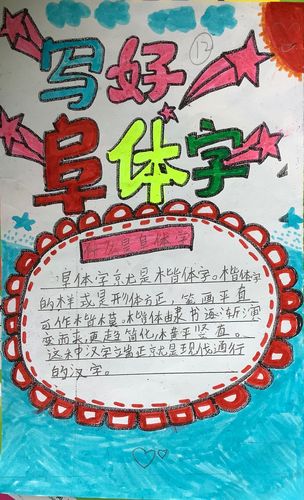 写好
12
阜体字
什么是阜体字
阜体字京尤是楷体字。楷体字
的样式是形体方正，笔画平直
可作楷模。楷体由隶书逐渐演
变而来，更趋简化，横平竖直。
这种汉字端正京尤是现代通行
的汉字。